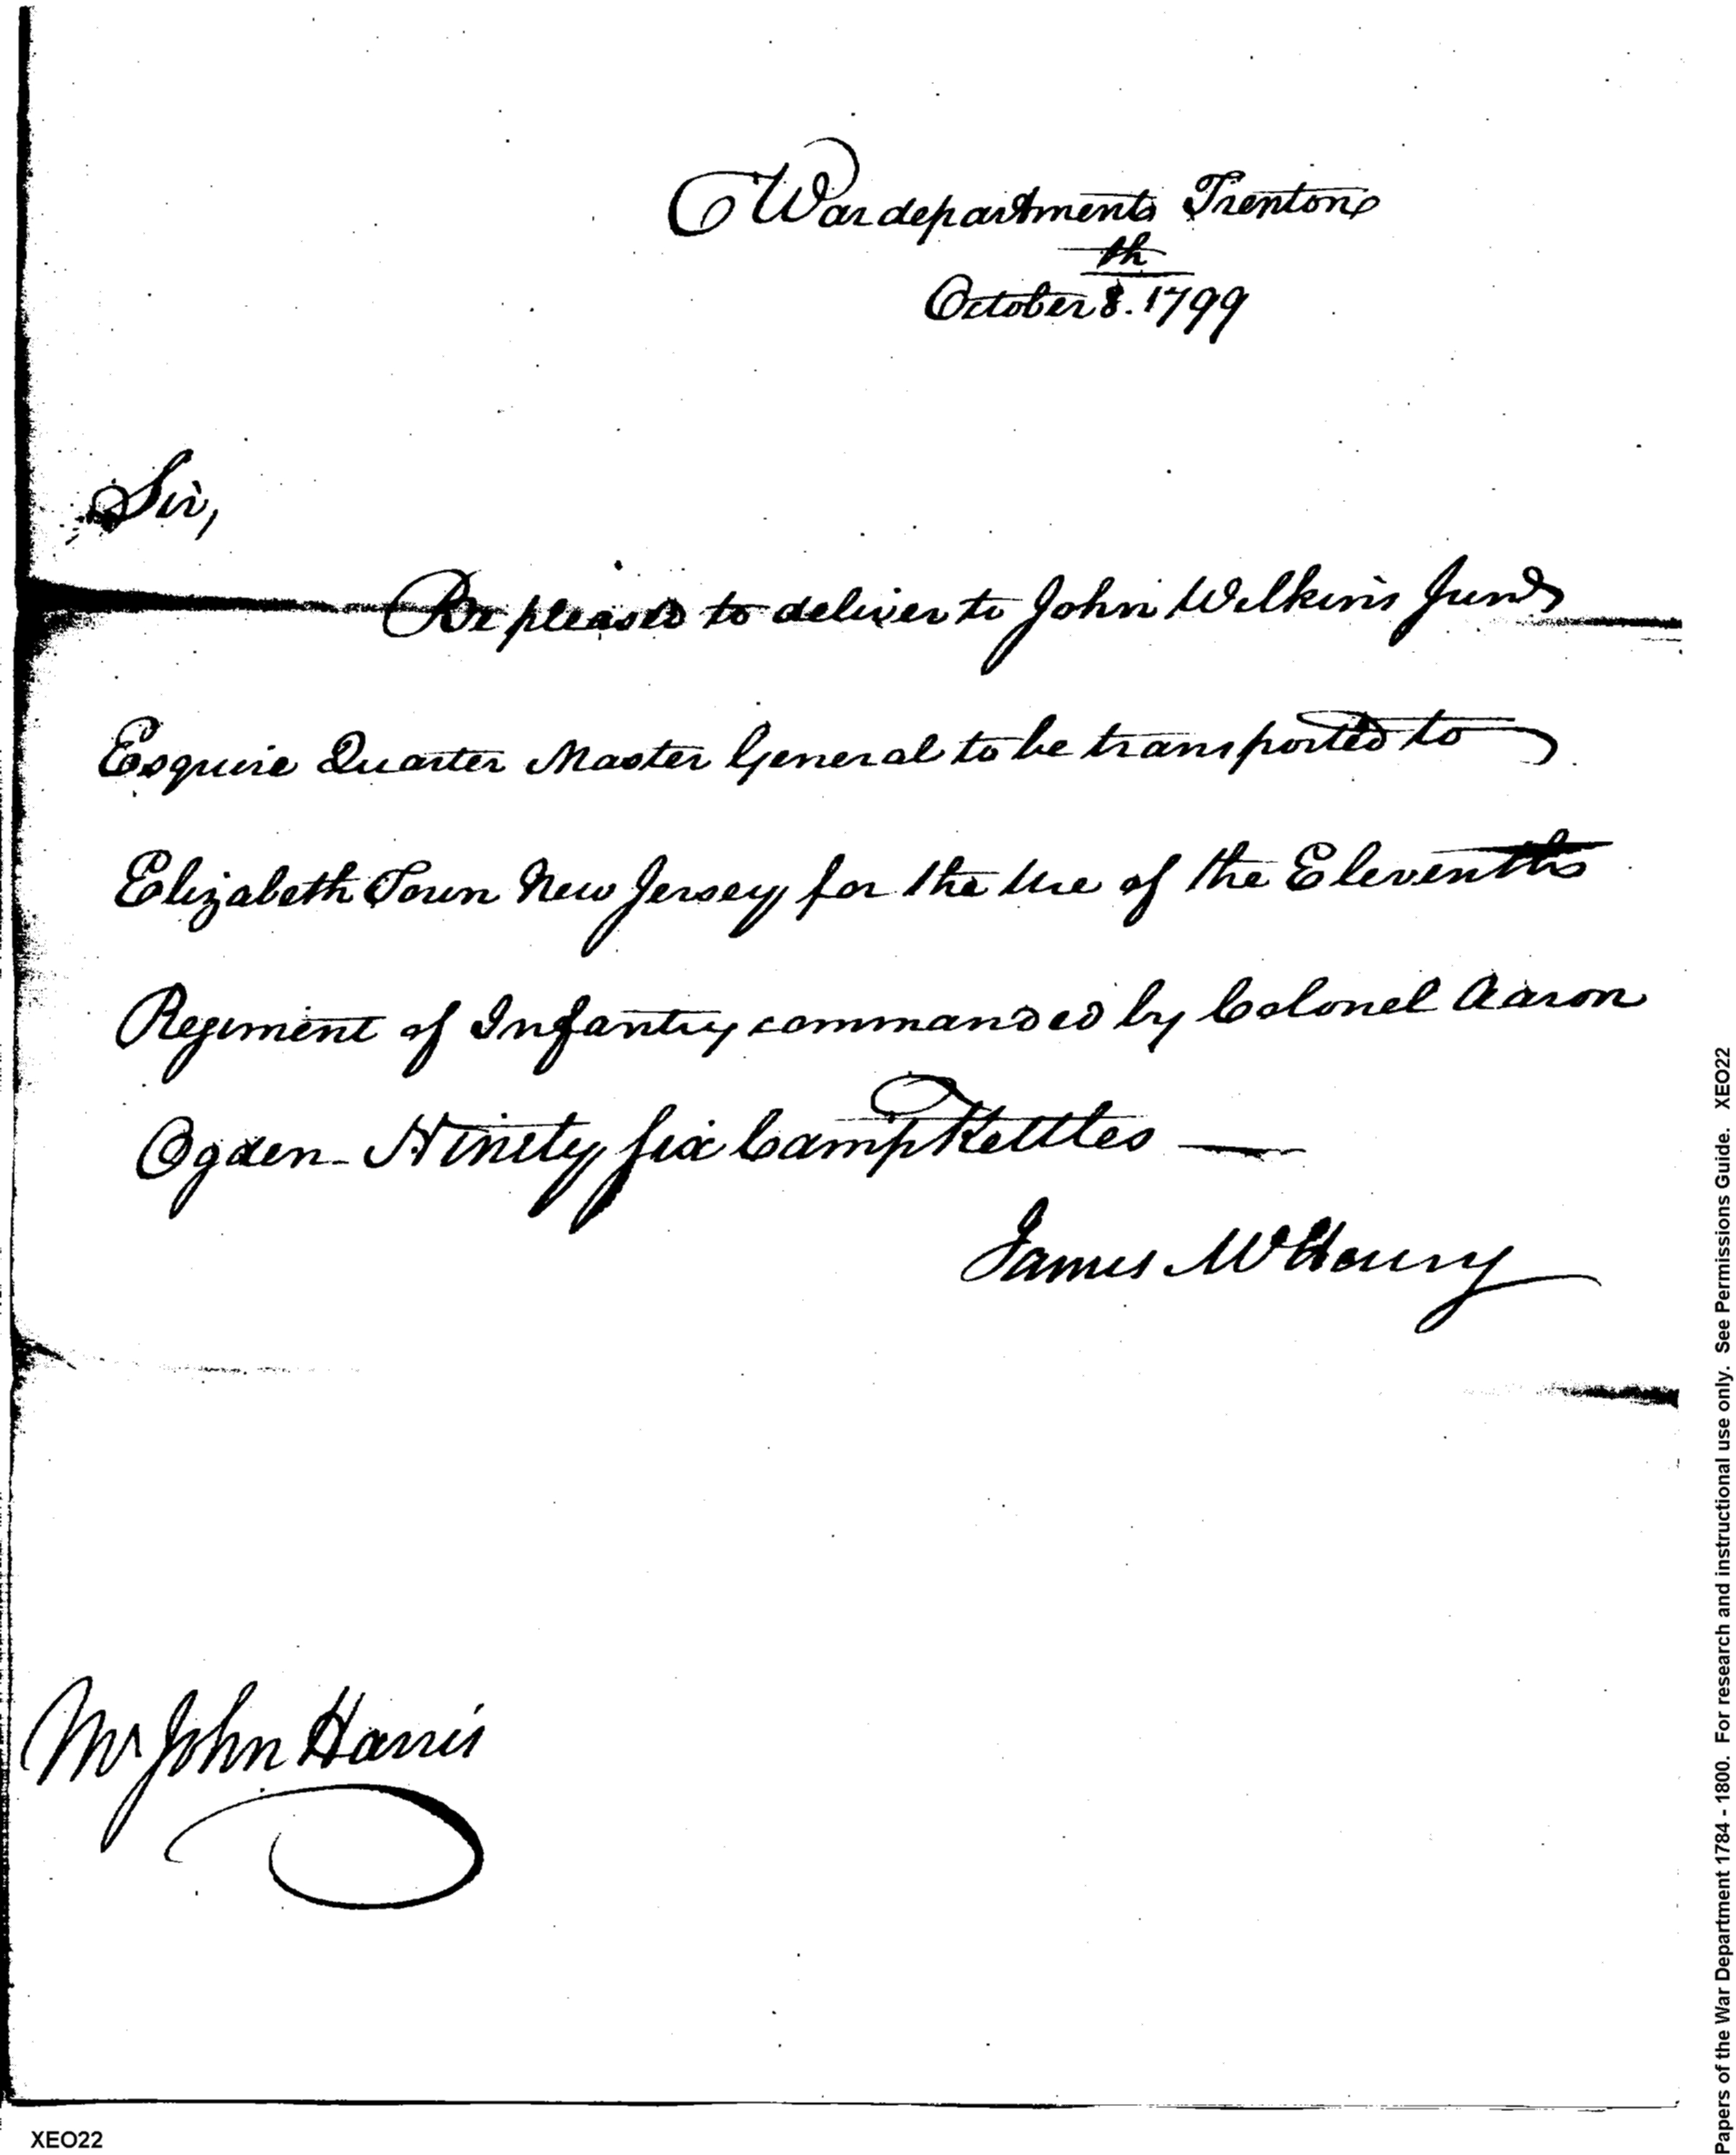 War department Trenton
October 8th. 1799
Sir,
Be pleased to deliver to John Wilkins Junr
Esquire Quarter Master General to be transported to
Elizabeth Town New Jersey for the Use of the Eleventh
Regiment of Infantry commanded by Colonel Aaron
Ogden - Ninety six Camp Kettles —
James McHenry
Mr John Harris
XEO22
Papers of the War Department 1784 - 1800. For research and instructional use only. See Permissions Guide. XEO22